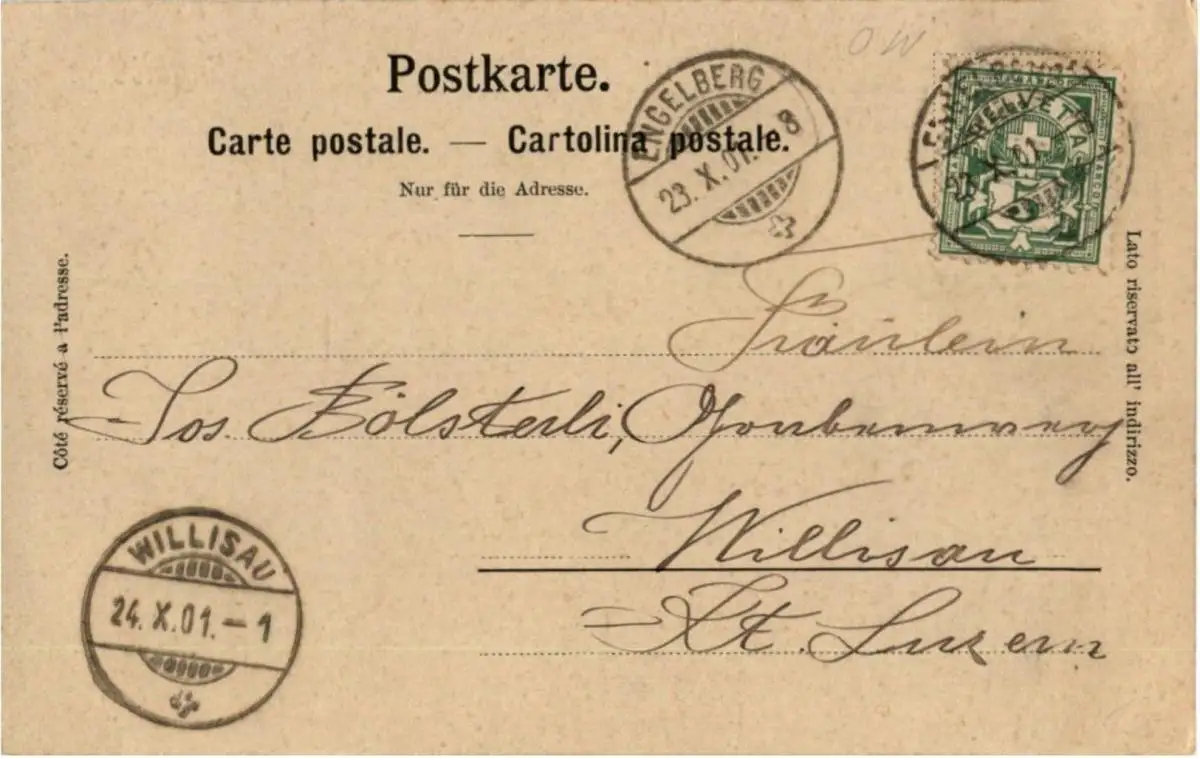 OW
Postkarte.
Carte postale. — Cartolina postale.
Nur für die Adresse.
ENGELBERG
23. X. 01. 8
HELVETIA
FRANCO
23. X. 01
5
Côté réservé à l'adresse.
Lato riservato all' indirizzo.
Fräulein
Jos. Bölsterli,
Willisau
Kt. Luzern
WILLISAU
24. X. 01. – 1